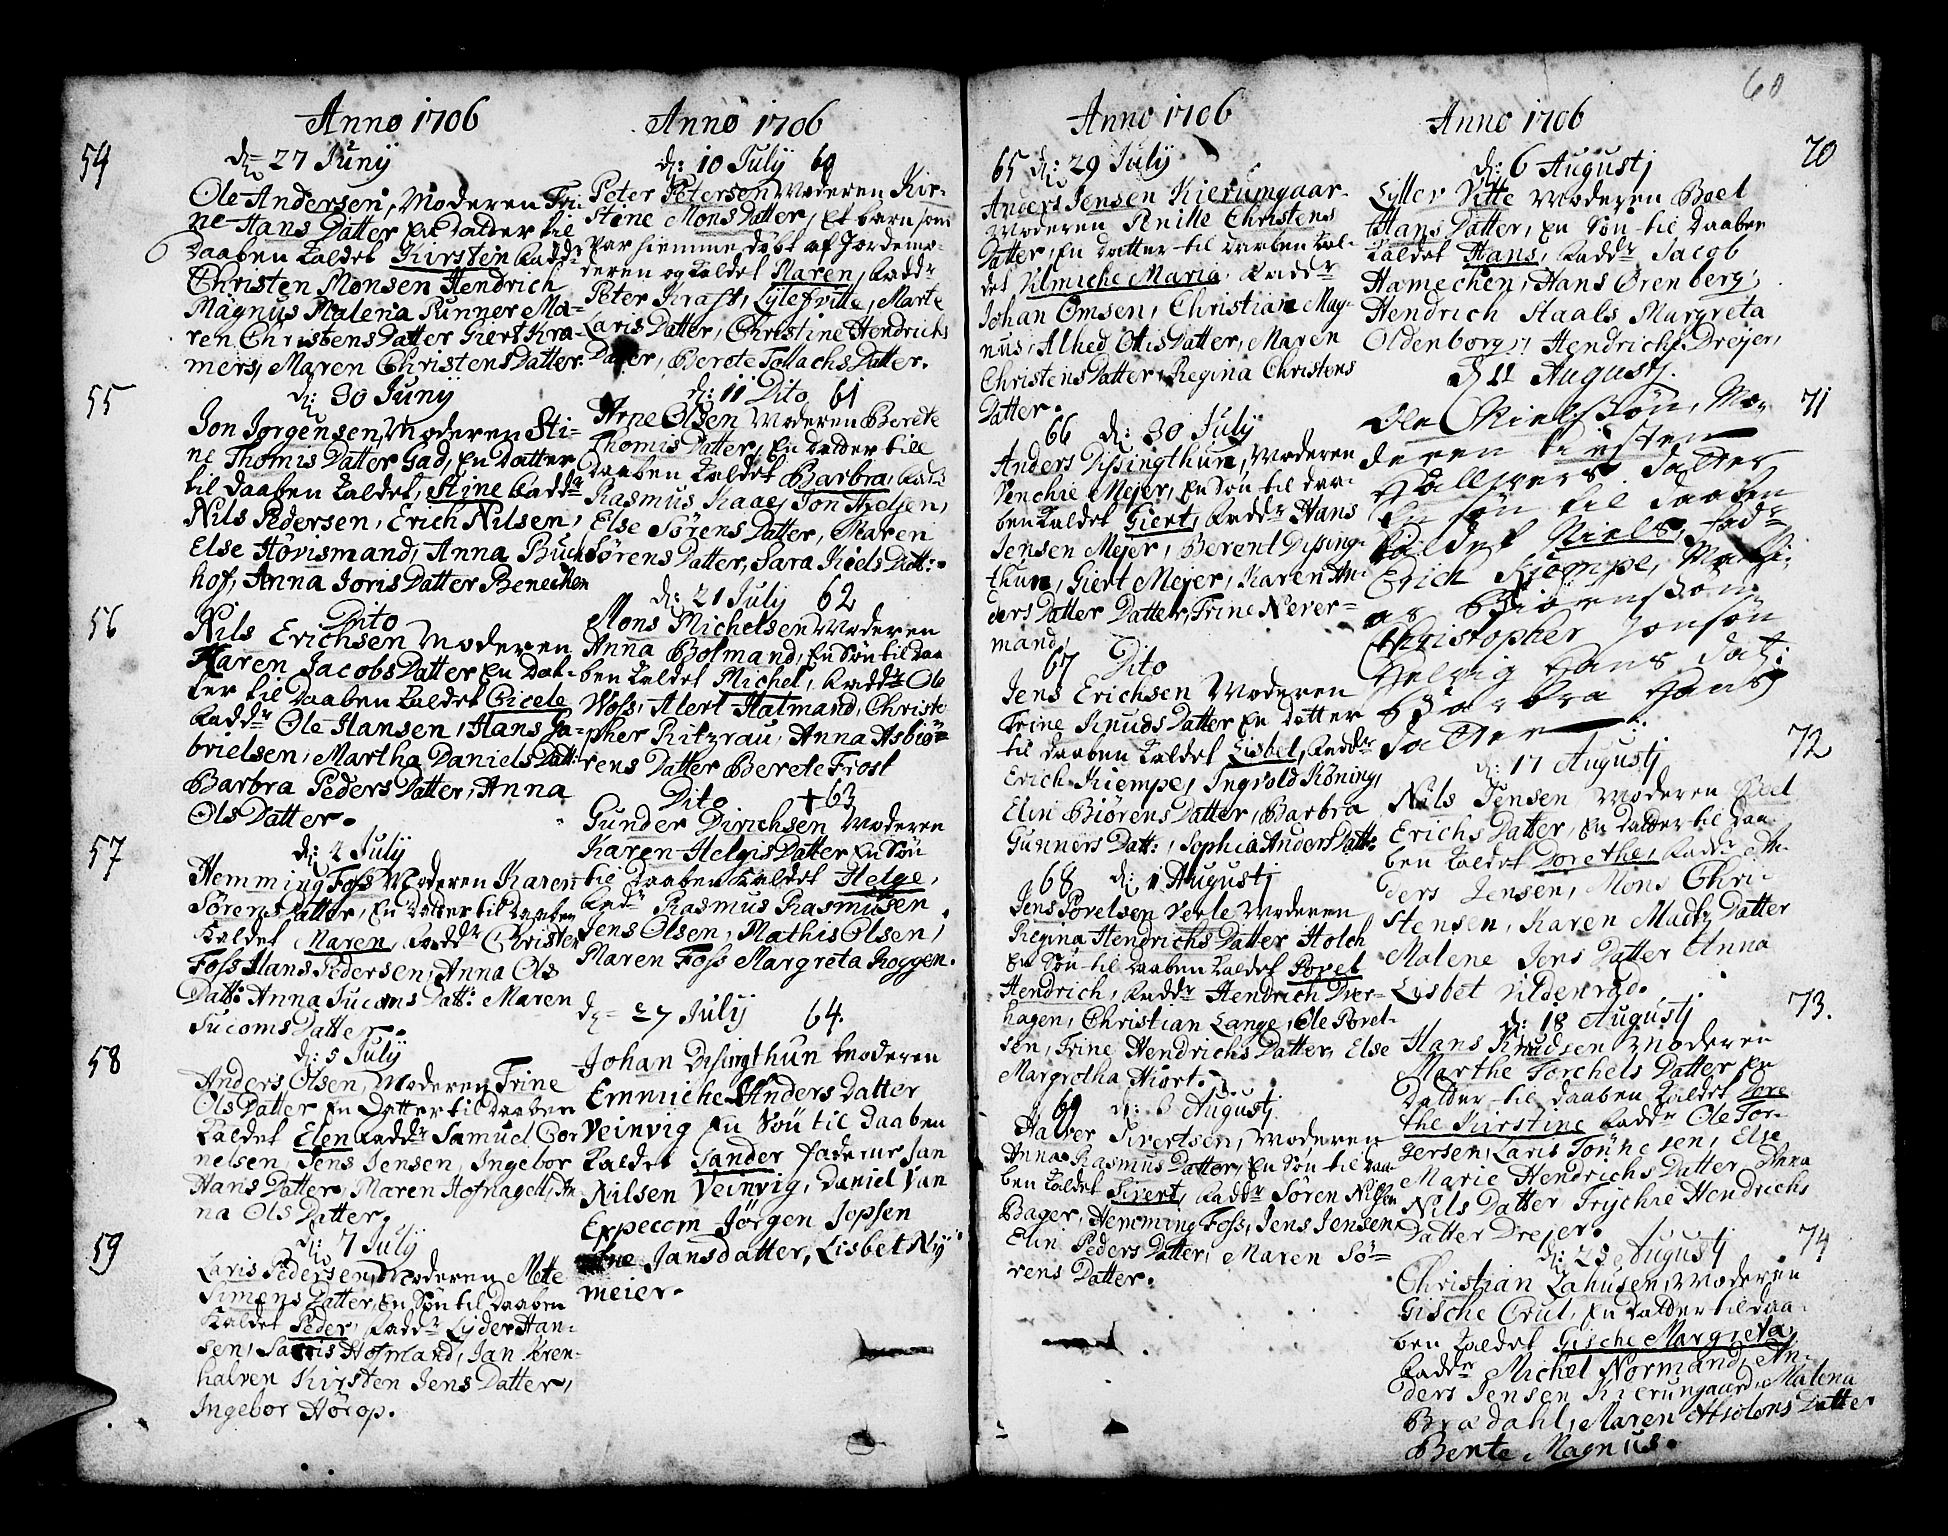 60
Anno 1706
54
d: 27 Junij
Ole Andersen, Moderen Tri-
ne Hans Datter En Datter til
Daaben Kaldet Kirsten Fadd:r
Christen Monsen Hendrich
Magnus Malena Runner Ma-
ren Christens Datter Giert Kra-
mers, Maren Christens Datter.
55
d: 30 Junij
Jon Jørgensen Moderen Sti-
ne Thomis Datter Gad, En Datter
til Daaben Kaldet, Stine Fadd:r
Nils Pedersen, Erich Nilsen,
Else Hövismand, Anna Buch
hof, Anna Joris Datter Benechen
56
Dito
Nils Erichsen Moderen
Karen Jacobs Datter En Dat-
ter til Daaben Kaldet Cicele
Fadd:r Ole Hansen, Hans Ga-
brielsen, Martha Daniels Datt:
Barbra Peders Datter, Anna
Ols Datter.
57
d: 2 July
Hemming Foss Moderen Karen
Sørens Datter, En Datter til Daaben
Kaldet Maren, Fadd:r Christen
Foss Hans Pedersen, Anna Ols
Datt: Anna Jucoms Datt: Maren
Jucoms Datter.
58
d: 5 July
Anders Olsen, Moderen Trine
Ols Datter En Datter til Daaben
Kaldet Elen Fadd:r Samuel Cor
nelsen Jens Jensen, Ingebor
Hans Datter, Maren Hofnagell, An
na Ols Datter.
59
d: 7 July
Laris Pedersen, Moderen Mete
Simens Datter, En Søn til Daaben
Kaldet Peder, Fadd:r Lyder Han-
sen, Hofmand, Jan Veren-
halven Kirsten Jens Datter,
Ingebor Hörop.
Anno 1706
d: 10 July 60
Peter Petersen Moderen Kir-
stine Mons Datter, Et barn som
var hiemme döbt af Jordemo-
deren og Kaldet Maren, Fadd:r
Peter Kraft, Lytef vitte, Marte
Laris Datter, Christine Hendrichs
Datter, Berete Tollachs Datter.
d: 11 Dito 61
Arne Olsen Moderen Berete
Thomis Datter, En Datter till
Daaben Kaldet Barbra, Fad:
Rasmus Kaae, Jon Hielsen,
Else Sørens Datter, Maren
Sørens Datter, Sara Kiels Datt:
d: 21 July 62
Mons Michelsen Moderen
Anna Botmand, En Søn til Daa
ben Kaldet Michel, Fadd:r Ole
Voss, Alert Hatmand, Christo
pher Ritzrau, Anna Asbiö-
rens Datter Berete Frost
Dito +63
Gunder Dirichsen Moderen
Karen Helgis Datter En Søn
til Daaben Kaldet Helge,
Fad:r Rasmus Rasmusen
Jens Olsen, Mathis Olsen,
Maren Foss Margreta Roggen.
d: 27 July 64.
Johan Dissingthun Moderen
Emmiche Anders Datter
Veinvig En Søn til Daaben
Kaldet Sander Faderne Jan
Nilsen Veinvig, Daniel Van
Expecom Jörgen Jopsen
Jansdatter, Lisbet Nÿ
meier.
Anno 1706
65 d: 29 July
Anders Jensen Kierumgaar
Moderen Anille Christens
Datter, En Datter til Daaben Kal-
det Vilmiche Maria, Fadd:r
Johan Omsen, Christian Mag-
nus, Alhed Otis Datter, Maren
Christens Datter, Regina Christens
Datter.
66 d: 30 July
Anders Dissingthun, Moderen
Venchie Mejer, En Søn til Daa-
ben Kaldet Giert, Fadd:r Hans
Jensen Mejer, Berent Dissing-
thun, Giert Mejer, Karen An-
ders Datter Datter, Trine Nerer-
mand,
67 Dito
Jens Erichsen Moderen
Trine Knuds Datter En Datter
til Daaben Kaldet Lisbet, Fadd:r
Erich Kiempe, Ingvold Köning,
Elin Biörens Datter, Barbra
Gunners Datt:, Sophia Anders Datt:
68 d: 1 Augustj
Jens Povelsen Verle Moderen
Regina Hendrichs Datter Holch
En Søn til Daaben Kaldet Povel
Hendrich, Fadd:r Hendrich Dver-
hagen, Christian Lange, Ole Povel-
sen, Trine Hendrichs Datter, Else
Margrotha Hiort.
69 d: 3 Augustj
Halver Sivertsen, Moderen
Anna Rasmus Datter, En Søn til Daa
ben Kaldet Sivert, Fadd:r Sören Nilsen
Bager, Hemming Foss, Jens Jensen
Elin Peders Datter, Maren Sö-
rens Datter.
Anno 1706
d: 6 Augustj 70
Lytter Vitte Moderen Boel
Hans Datter, En Søn til Daaben
Kaldet Hans, Fadd:r Jacob
Hamechen, Hans Örenberg,
Hendrich Staals Margreta
Oldenborg, Hendrich Drejer,
d: 11 Augustj.
71
Ole Nielssön, Mo-
deren Kiesten
Hallvers datter
En sön til daaben
Kaldet Niels, Fad:r
Erich Kiömpe, Matti-
as Biörenssön
Christopher Jonsön
Helvig Hans dat:
Barbra Hans
datter
72
d: 17 Augustj
Nils Jensen Moderen Boel
Erichs Datter, En Datter til Daa
ben Kaldet Dorethe, Fadd:r An-
ders Jensen, Mons Chri-
stensen, Karen Mads Datter
Malene Jens Datter Anna
Lysbet Vildenrad.
73.
d: 18 Augustj
Hans Knudsen Moderen
Marthe Torchels Datter En
Datter til Daaben Kaldet Dore
the Kirstine Fadd:r Ole Tor-
gersen, Laris Tönnesen, Else
Marie Hendrichs Datter Anna
Nils Datter Trychie Hendrichs
Datter Drejer.
74
d: 23 Augustj
Christian Lahusen, Moderen
Gische Crul, En Datter til Daa-
ben Kaldet Gische Margreta,
Fadd:r Michel Normand, An-
ders Jensen Kierumgaard, Malena
Bradahl, Maren Absolons Datter
Bente Magnus.